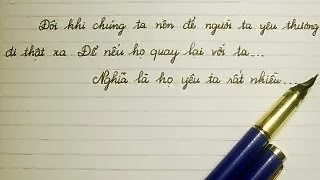 Đôi khi chúng ta nên để người ta yêu thương
đi thật xa Để nếu họ quay lại với ta...
Nghĩa là họ yêu ta rất nhiều....